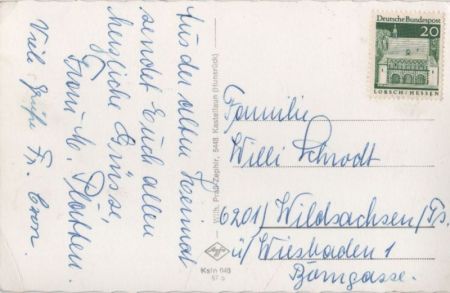 Aus der alten Heimat
sendet Euch allen
herzliche Grüsse,
Frau M. Platten.
Viele Grüße Fr. Cron.
Wilh. Praß-Zephir, 5448 Kastellaun (Hunsrück)
Agfa
Ksln 646
Deutsche Bundespost
20
LORSCH/HESSEN
Familie
Willi Schrodt
6201/Wildsachsen/Ts.
ü/Wiesbaden 1
Börngasse.